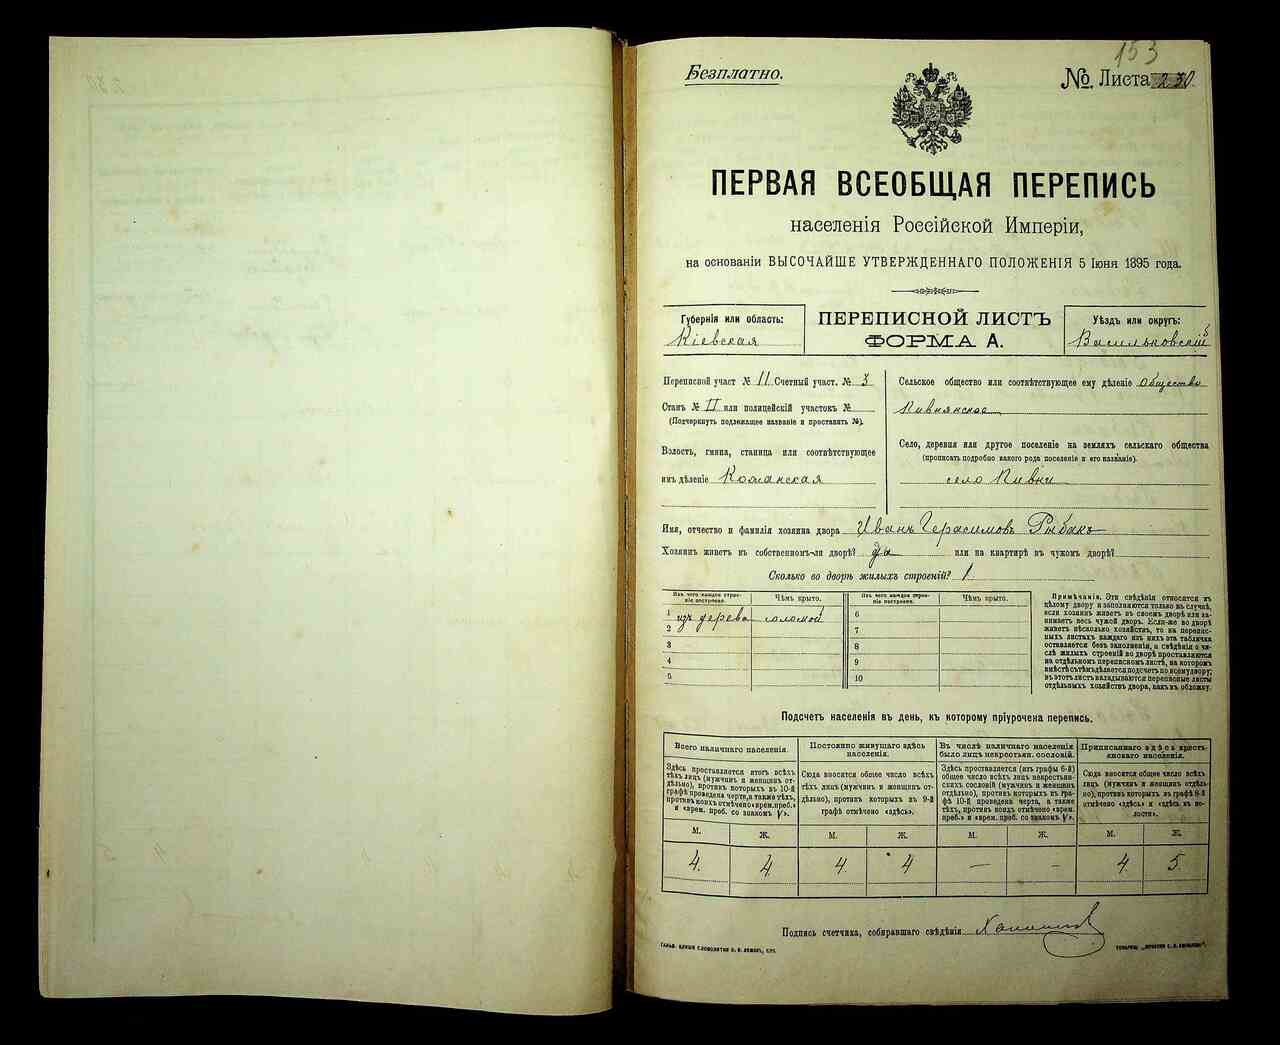 153
Безплатно.
№. Листа 230.
ПЕРВАЯ ВСЕОБЩАЯ ПЕРЕПИСЬ
населенія Россійской Имперіи,
на основаніи ВЫСОЧАЙШЕ УТВЕРЖДЕННАГО ПОЛОЖЕНІЯ 5 Іюня 1895 года.
Губернія или область:
Кіевская
ПЕРЕПИСНОЙ ЛИСТЪ
ФОРМА А.
Уѣздъ или округъ:
Васильковскій
Переписной участ № II Счетный участ. № 3
Станъ № II или полицейскій участокъ №
(Подчеркнуть подлежащее названіе и проставить №).
Волость, гмина, станица или соотвѣтствующее
имъ дѣленіе Кожанская
Сельское общество или соотвѣтствующее ему дѣленіе Общество
Пивнянское
Село, деревня или другое поселеніе на земляхъ сельскаго общества
(прописать подробно какого рода поселеніе и его названіе).
село Пивни
Имя, отчество и фамилія хозяина двора Иванъ Герасимовъ Рыбакъ
Хозяинъ живетъ въ собственномъ-ли дворѣ? да или на квартирѣ въ чужомъ дворѣ?
Сколько во дворѣ жилыхъ строеній? 1
Изъ чего каждое строе-
ніе построено.
Чѣмъ крыто.
Изъ чего каждое строе-
ніе построено.
Чѣмъ крыто.
1 изъ дерева соломой
2
3
4
5
6
7
8
9
10
Примѣчанія. Эти свѣдѣнія относятся къ
цѣлому двору и заполняются только въ случаѣ,
если хозяинъ живетъ въ своемъ дворѣ или за-
нимаетъ весь чужой дворъ. Если-же во дворѣ
живетъ нѣсколько хозяйствъ, то на перепис-
ныхъ листахъ каждаго изъ нихъ эта табличка
оставляется безъ заполненія, а свѣдѣнія о чи-
слѣ жилыхъ строеній во дворѣ проставляются
на отдѣльномъ переписномъ листѣ, на которомъ
вмѣстѣ съ тѣмъ дѣлается подсчетъ по всему двору;
въ этотъ листъ вкладываются переписные листы
отдѣльныхъ хозяйствъ двора, какъ въ обложку.
Подсчетъ населенія въ день, къ которому пріурочена перепись.
Всего наличнаго населенія.
Здѣсь проставляется итогъ всѣхъ
тѣхъ лицъ (мужчинъ и женщинъ от-
дѣльно), противъ которыхъ въ 10-й
графѣ проведена черта, а также тѣхъ,
противъ коихъ отмѣчено «врем. преб.»
и «врем. преб. со знакомъ V».
Постоянно живущаго здѣсь
населенія.
Сюда вносятся общее число всѣхъ
тѣхъ лицъ (мужчинъ и женщинъ от-
дѣльно), противъ которыхъ въ 9-й
графѣ отмѣчено «здѣсь».
Въ числѣ наличнаго населенія
было лицъ некрестьян. сословій.
Здѣсь проставляется (изъ графы 6-й)
общее число всѣхъ лицъ некрестьян-
скихъ сословій (мужчинъ и женщинъ
отдѣльно), противъ которыхъ въ гра-
фѣ 10-й проведена черта, а также
тѣхъ, противъ коихъ отмѣчено «врем.
преб.» и «врем. преб. со знакомъ V».
Приписаннаго здѣсь кресть-
янскаго населенія.
Сюда вносятся общее число всѣхъ
лицъ (мужчинъ и женщинъ отдѣль-
но), противъ которыхъ въ графѣ 8-й
отмѣчено «здѣсь» и «здѣсь въ во-
лости».
М. Ж. М. Ж. М. Ж. М. Ж.
4. 4 4 4 — - 4 5
Подпись счетчика, собиравшаго свѣдѣнія